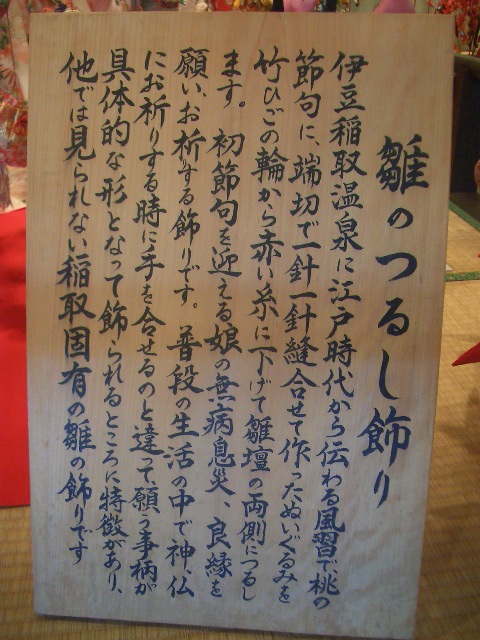 雛のつるし飾り
伊豆稲取温泉に江戸時代から伝わる風習で桃の
節句に、端切で一針一針縫合せて作ったぬいぐるみを
竹ひごの輪から赤い糸に下げて雛壇の両側につるし
ます。初節句を迎える娘の無病息災、良縁を
願い、お祈りする飾りです。普段の生活の中で神、仏
にお祈りする時に手を合せるのと違って願う事柄が
具体的な形となって飾られるところに特徴があり、
他では見られない稲取固有の雛の飾りです